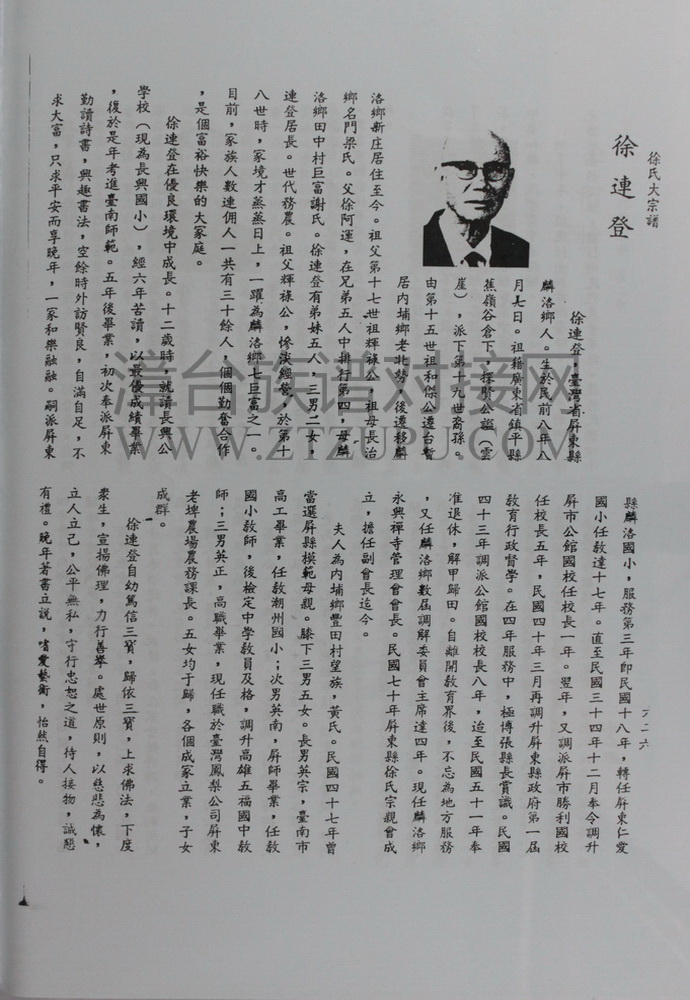 徐氏大宗譜
徐連登
徐連登，臺灣省屏東縣
麟洛鄉人。生於民前八年八
月七日。祖籍廣東省鎮平縣
蕉嶺谷倉下，探賢公謚（雲
崖），派下第十九世裔孫。
由第十五世祖和傑公遷台暫
居內埔鄉老北勢，後遷移麟
洛鄉新庄居住至今。祖父第十七世祖輝祿公，祖母長治
鄉名門梁氏。父徐阿運，在兄弟五人中排行第四，母麟
洛鄉田中村巨富謝氏。徐連登有弟妹五人，三男二女，
連登居長。世代務農。祖父輝祿公，慘淡經營，於第十
八世時，家境才蒸蒸日上，一躍為麟洛鄉七巨富之一。
目前，家族人數連佣人一共有三十餘人，個個勤奮合作
，是個富裕快樂的大家庭。
徐連登在優良環境中成長。十二歲時，就讀長興公
學校（現為長興國小），經六年苦讀，以最優成績畢業
，復於是年考進臺南師範。五年後畢業，初次奉派屏東
勤讀詩書，興趣書法，空餘時外訪賢良，自滿自足，不
求大富，只求平安而享晚年，一家和樂融融。嗣派屏東
六二六
縣麟洛國小，服務第三年即民國十八年，轉任屏東仁愛
國小任教達十七年。直至民國三十四年十二月奉令調升
屏市公館國校任校長一年。翌年，又調派屏市勝利國校
任校長五年，民國四十年三月再調升屏東縣政府第一屆
教育行政督學。在四年服務中，極博張縣長賞識。民國
四十三年調派公館國校校長八年，迨至民國五十一年奉
准退休，解甲歸田。自離開教育界後，不忘為地方服務
，又任麟洛鄉數屆調解委員會主席達四年。現任麟洛鄉
永興禪寺管理會會長。民國七十年屏東縣徐氏宗親會成
立，擔任副會長迄今。
夫人為內埔鄉豐田村望族，黃氏。民國四十七年曾
當選屏縣模範母親。膝下三男五女。長男英宗，臺南市
高工畢業，任教潮州國小；次男英南，屏師畢業，任教
國小教師，後檢定中學教員及格，調升高雄五福國中教
師；三男英正，高職畢業，現任職於臺灣鳳梨公司屏東
老埤農場農務課長。五女均于歸，各個成家立業，子女
成群。
徐連登自幼篤信三寶，歸依三寶，上求佛法，下度
眾生，宣揚佛理，力行善舉。處世原則，以慈悲為懷，
立人立己，公平無私，守行忠恕之道，待人接物，誠懇
有禮。晚年著書立說，嗜愛藝術，怡然自得。
漳台族谱对接网
WWW.ZTZUPU.COM